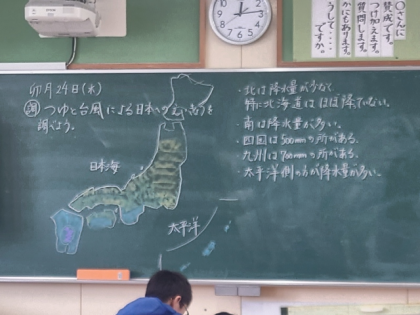 卯月24日(木)
つゆと台風による日本のえいきょうを
調べよう。
日本海
太平洋
・北は降水量が少なくて
特に北海道はほぼ降っていない。
・南は降水量が多い。
・四国は500mmの所がある。
・九州は700mmの所がある。
・太平洋側の方が降水量が多い。
〇〇さんに
賛成です。
つけ加えます。
質問します。
ほかにもあります。
どうして・・・
ですか。